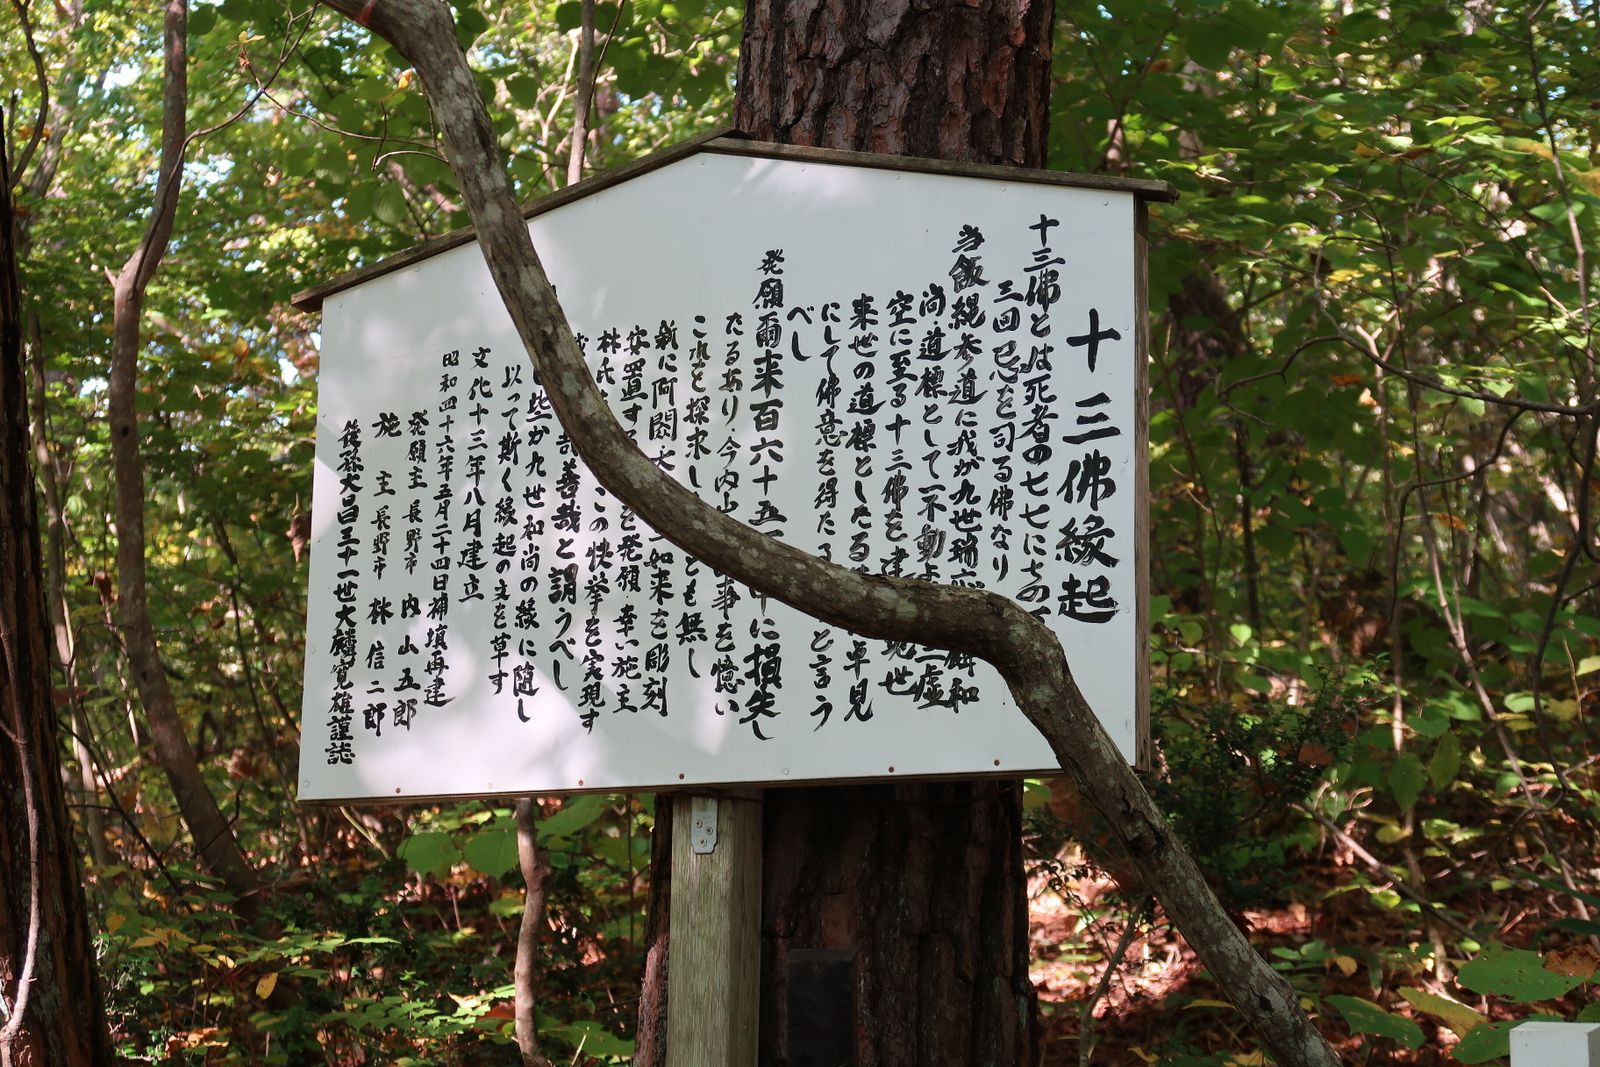 十三佛縁起
十三佛とは死者の七七に七の
三回忌を司る佛なり
当飯縄参道に我が九世瑞 麟和
尚道標として一不動よ 三虚
空に至る十三佛を建 現世
来世の道標としたる 卓見
にして佛意を得たる と言う
べし
発願爾来百六十五 中に損失し
たるあり、今内山 事を憶い
これを探求し とも無し
新に阿閦 如来を彫刻
安置す を発願 幸い施主
林氏 この快挙を実現す
哉善哉と謂うべし
些か九世和尚の縁に随し
以って斯く縁起の文を草す
文化十三年八月建立
昭和四十六年五月二十四日補填再建
発願主 長野市 内山五郎
施主 長野市 林信二郎
大昌三十一世大麟寛雄謹誌